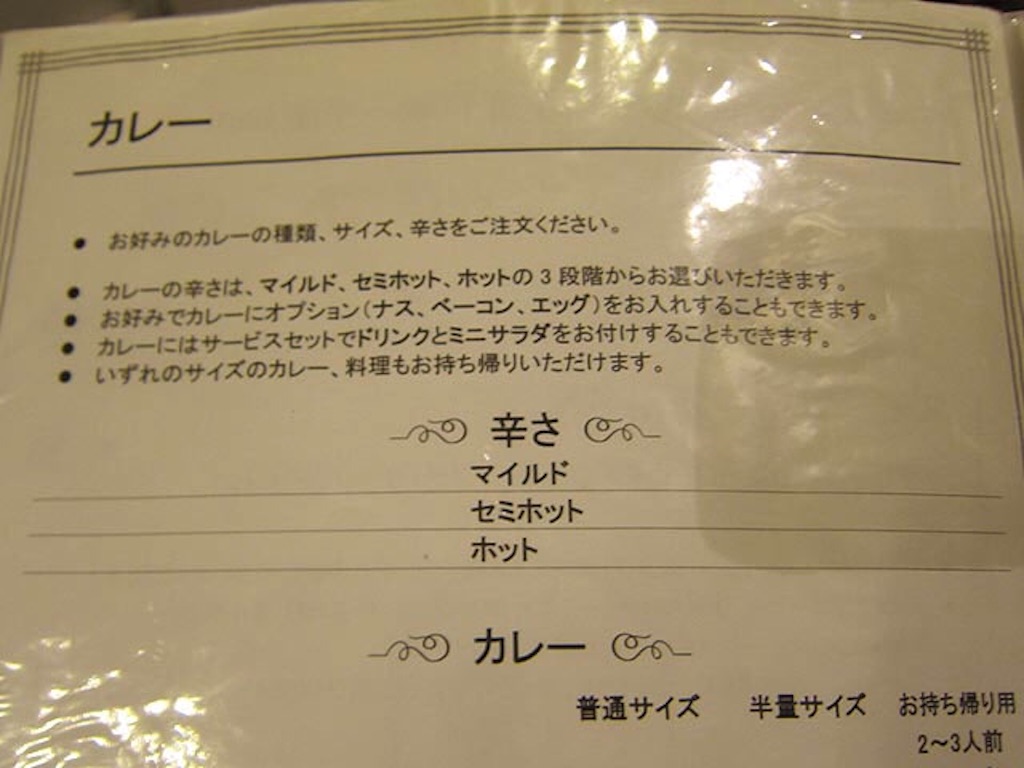 カレー
● お好みのカレーの種類、サイズ、辛さをご注文ください。
● カレーの辛さは、マイルド、セミホット、ホットの3段階からお選びいただきます。
● お好みでカレーにオプション(ナス、ベーコン、エッグ)をお入れすることもできます。
● カレーにはサービスセットでドリンクとミニサラダをお付けすることもできます。
● いずれのサイズのカレー、料理もお持ち帰りいただけます。
辛さ
マイルド
セミホット
ホット
カレー
普通サイズ 半量サイズ お持ち帰り用
2～3人前